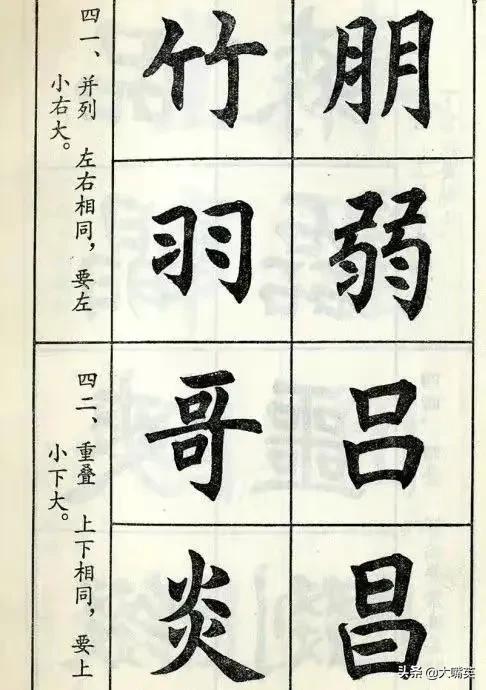 四一、并列 左右相同，要左
小右大。
朋竹
弱羽
四二、重叠 上下相同，要上
小下大。
吕哥
昌炎
头条@大嘴英